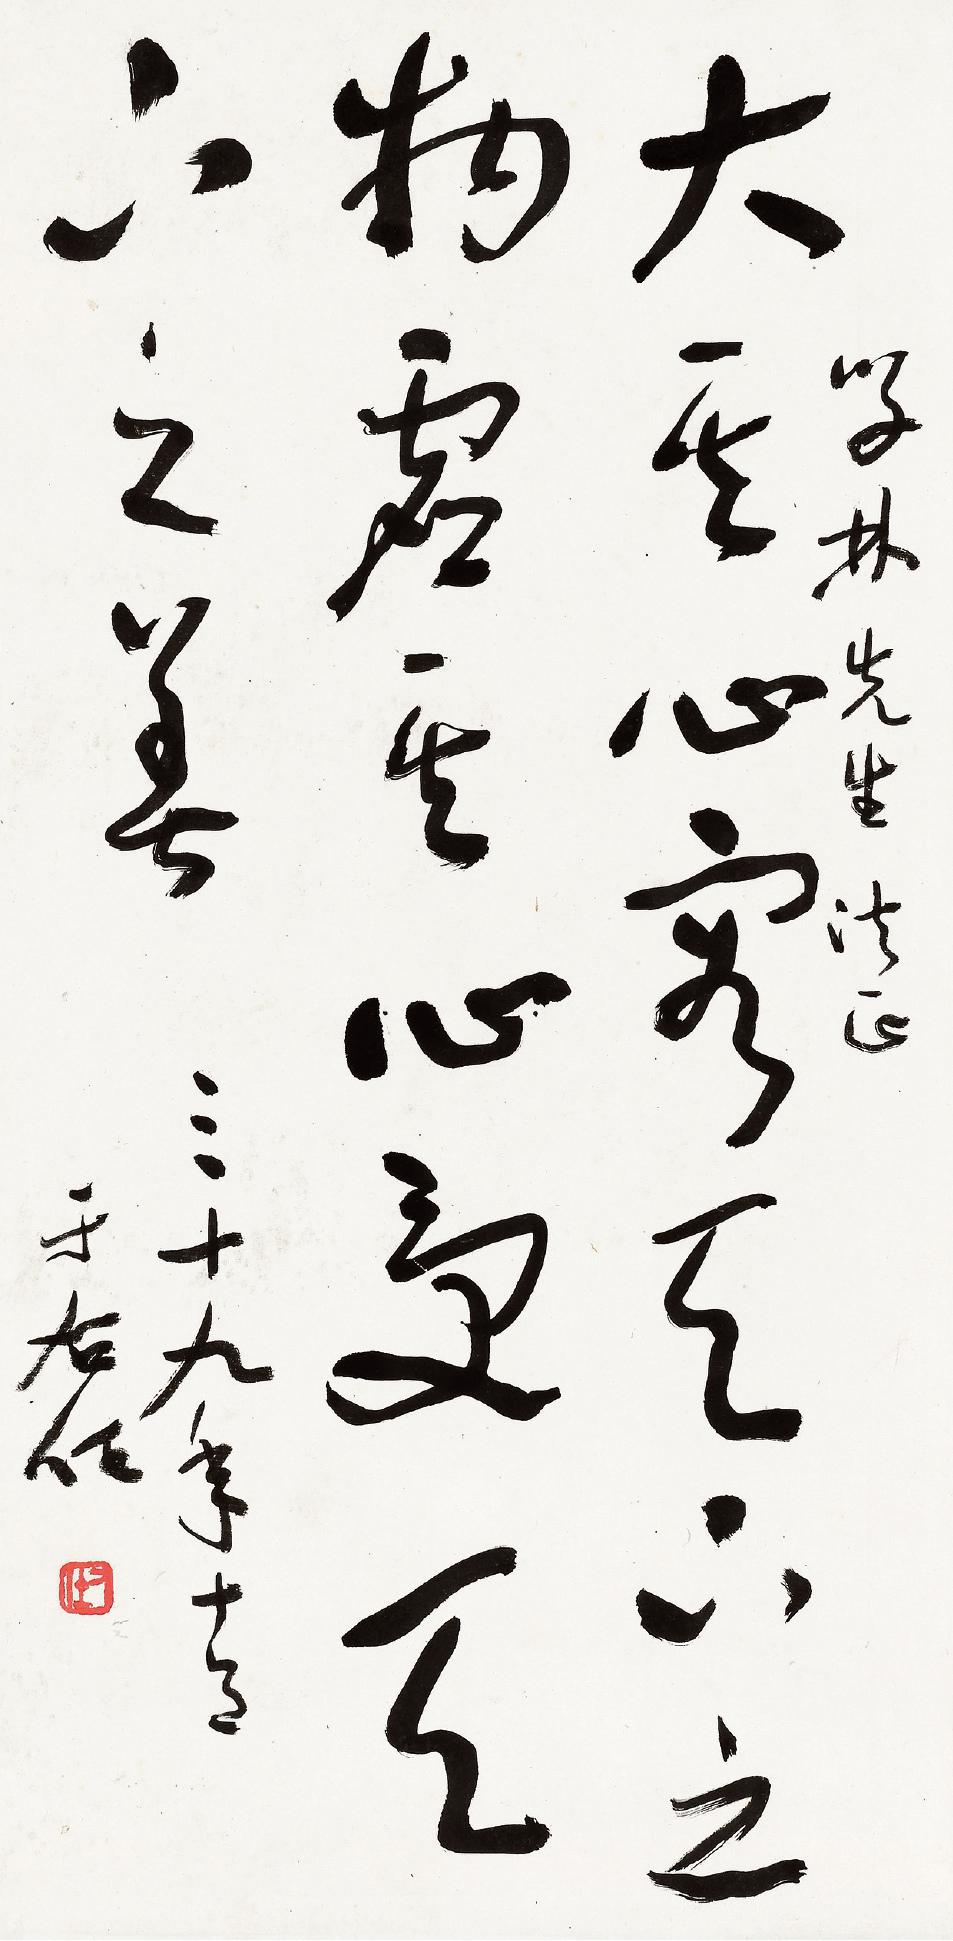 學林先生法正
大其心容天下之
物虛其心受天
下之善
三十九年
于右任
右任